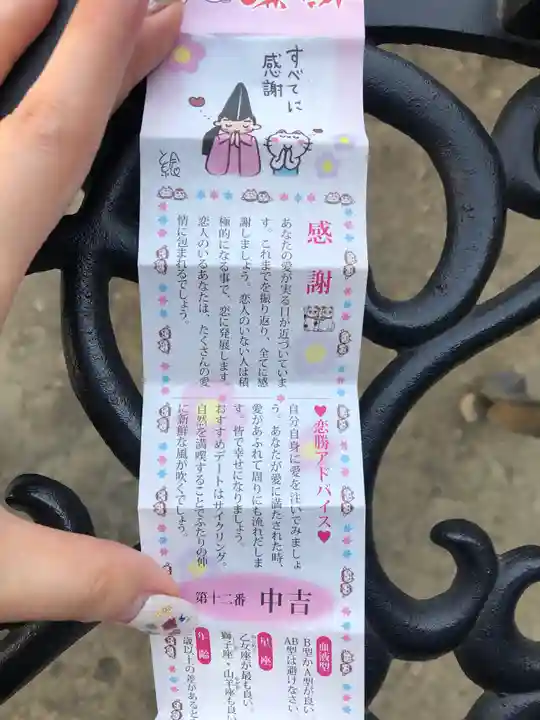 すべてに
感謝
絵
感謝
あなたの愛が実る日が近づいていま
す。これまでを振り返り、全てに感
謝しましょう。恋人のいない人は積
極的になる事で、恋に発展します。
恋人のいるあなたは、たくさんの愛
情に包まれるでしょう。
♥恋勝アドバイス♥
自分自身に愛を注いでみましょ
う。あなたが愛に満たされた時、
愛があふれて周りにも流れだしま
す。皆で幸せになりましょう。
おすすめデートはサイクリング。
自然を満喫することでふたりの仲
に新鮮な風が吹くでしょう。
第十二番 中吉
血液型
B型かA型が良い
AB型は避けなさい
星座
乙女座が最も良い。
獅子座・山羊座も良い
年齢
歳以上の差があると